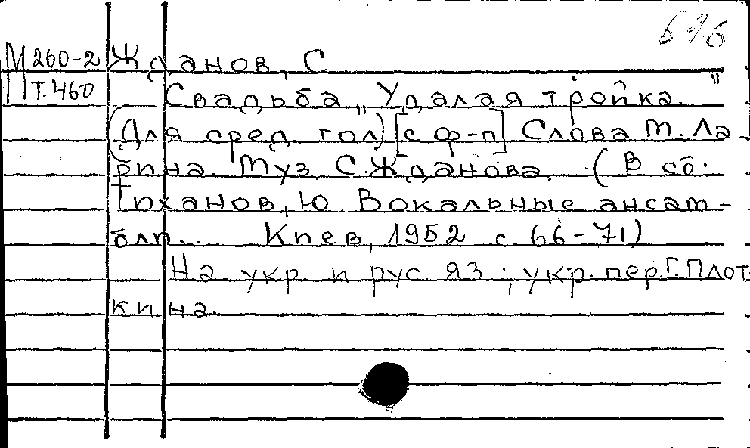 696
М260-2 Жданов, С
Пт.460 Свадьба „Удалая тройка."
(Для сред гол) [с ф-п] Слова М. Ла-
рина. Муз С. Жданова. (В сб.
Тиханов, Ю Вокальные ансам-
бли. Киев, 1952 с 66-71)
На укр и рус яз; укр. пер Г. Плот
кина.